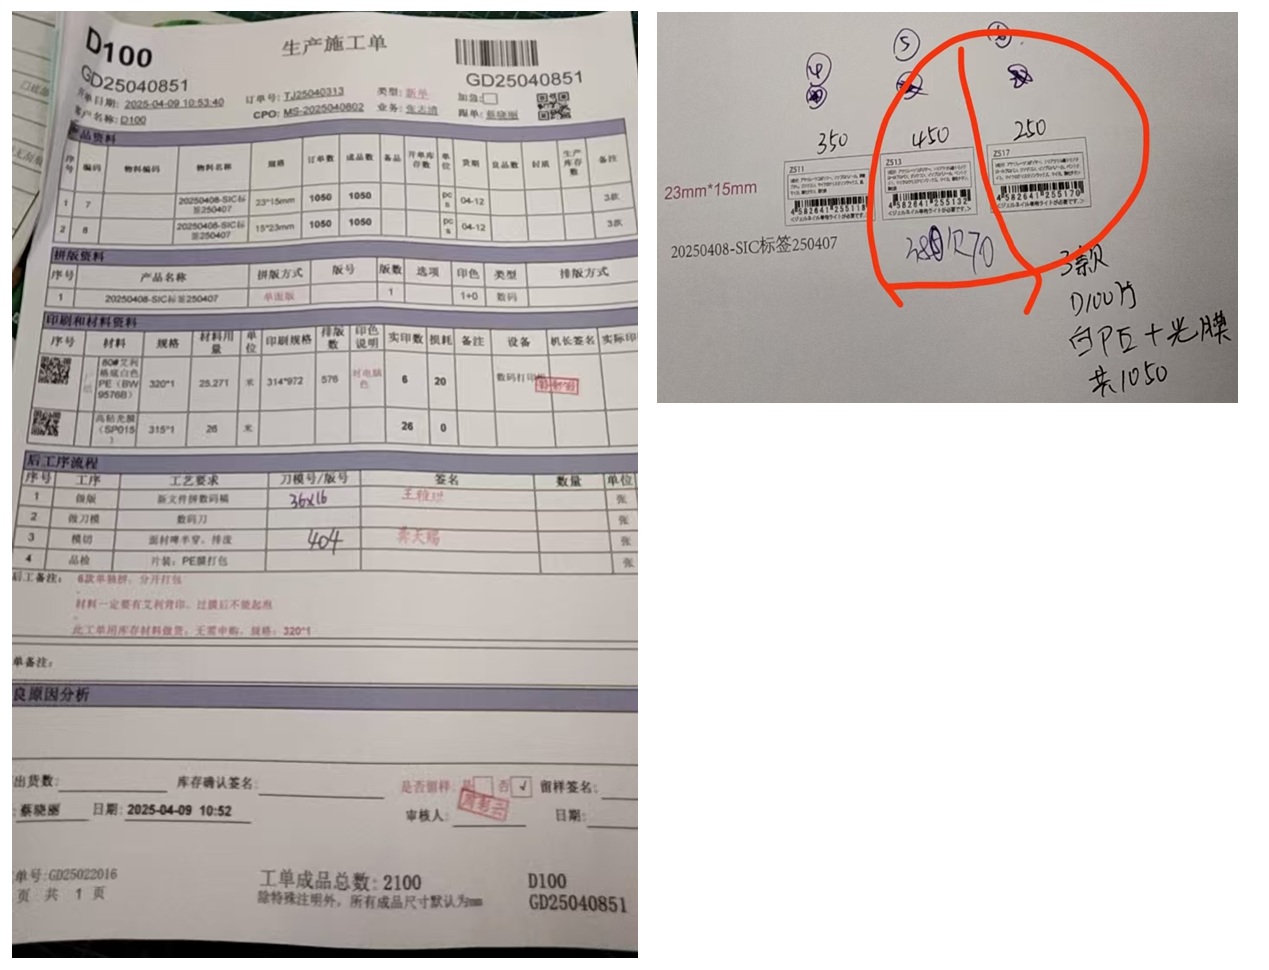 D100
生产施工单
GD25040851
GD25040851
开单日期: 2025-04-09 10:53:40
订单号: TJ25040313
类型: 新单
加急:
客户名称: D100
CPO: MS-2025040802
业务: 张志清
跟单: 蔡晓丽
产品资料
序号 编码 物料编码 物料名称 规格 订单数 成品数 备品 开单库存数 单位 货期 良品数 材质 生产库存数 备注
1 7 20250408-SIC标签250407 23*15mm 1050 1050 pcs 04-12 3款
2 8 20250408-SIC标签250407 15*23mm 1050 1050 pcs 04-12 3款
拼版资料
序号 产品名称 拼版方式 版号 版数 选项 印色 类型 排版方式
1 20250408-SIC标签250407 单面版 1 1+0 数码
印刷和材料资料
序号 材料 规格 材料用量 单位 印刷规格 排版数 印色说明 实印数 损耗 备注 设备 机长签名 实际印
80#艾利格底白色PE（BW9576B） 320*1 25.271 米 314*972 576 对电脑色 6 20 数码打印
高粘光膜（SP015） 315*1 26 米 26 0
后工序流程
序号 工序 工艺要求 刀模号/版号 签名 数量 单位
1 做版 新文件拼数码稿 36x16 张
2 做刀模 数码刀 张
3 模切 面材啤半穿，排废 404 龚天赐 张
4 品检 片装，PE膜打包 张
后工备注: 6款单独拼，分开打包
材料一定要有艾利背印，过膜后不能起泡
此工单用库存材料做货，无需申购，规格：320*1
单备注:
良原因分析
出货数:
库存确认签名:
是否留样: 是 否 √ 留样签名:
: 蔡晓丽 日期: 2025-04-09 10:52
审核人:
日期:
单号:GD25022016
页 共 1 页
工单成品总数: 2100
除特殊注明外，所有成品尺寸默认为mm
D100
GD25040851
4 5 6
350 450 250
ZS11 ZS13 ZS17
4 582641 255118 4 582641 255132 4 582641 255170
<ジェルネイル専用ライトが必要です。> <ジェルネイル専用ライトが必要です。> <ジェルネイル専用ライトが必要です。>
23mm*15mm
20250408-SIC标签250407
3款
D100片
白PE+光膜
共1050